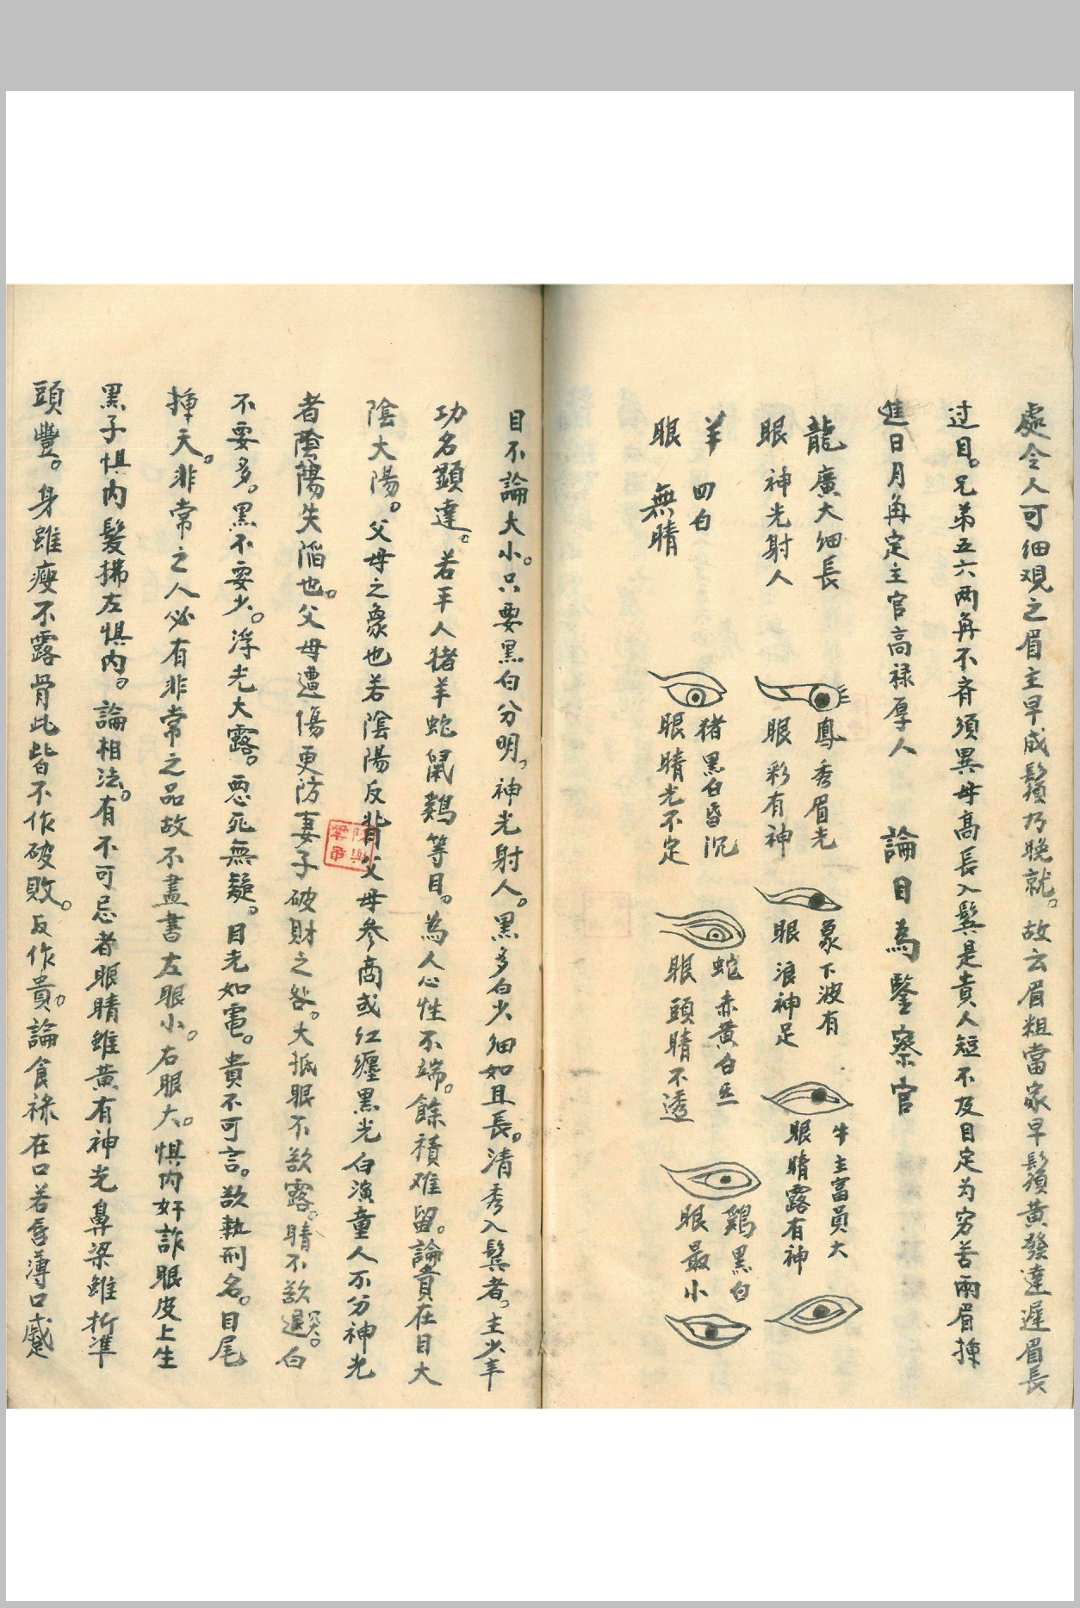 處令人可細观之眉主早成鬚乃晚就。故云眉粗當家早鬚須黄發達遲眉長
过目。兄弟五六两角不齐須異母高長入鬓是贵人短不及目定为穷苦兩眉揀
進日月角定主官高禄厚人
論目為鑒察官
龍眼
廣大細長
神光射人
鳳眼
秀眉光
彩有神
象眼
下波有
浪神足
牛眼
主富員大
睛露有神
羊眼
四白
無睛
猪眼
黑白昏沉
睛光不定
蛇眼
赤黄白
頭睛不透
鷄眼
黑白
最小
目不論大小。只要黑白分明。神光射人。黑多白少細如且長。清秀入鬓者。主少年
功名顯達。若羊人猪羊蛇鼠鷄等目。為人心性不端。餘積难留。論貴在目大
陰大陽。父母之象也若陰陽反背父母參商或红纏黑光白演童人不分神光
者陰陽失陷也。父母遭傷更防妻子破財之咎。大抵眼不欲露。睛不欲退。白
不要多。黑不要少。浮光大露。悪死無疑。目光如電。貴不可言。欲執刑名。目尾
揷天。非常之人必有非常之品故不盡書左眼小。右眼大。惧内奸詐眼皮上生
黑子惧内髮拂左惧内。論相法。有不可忌者眼睛雖黄有神光鼻梁雖折準
頭豐。身雖瘦不露骨此皆不作破敗。反作貴。論食禄在口若唇薄口感